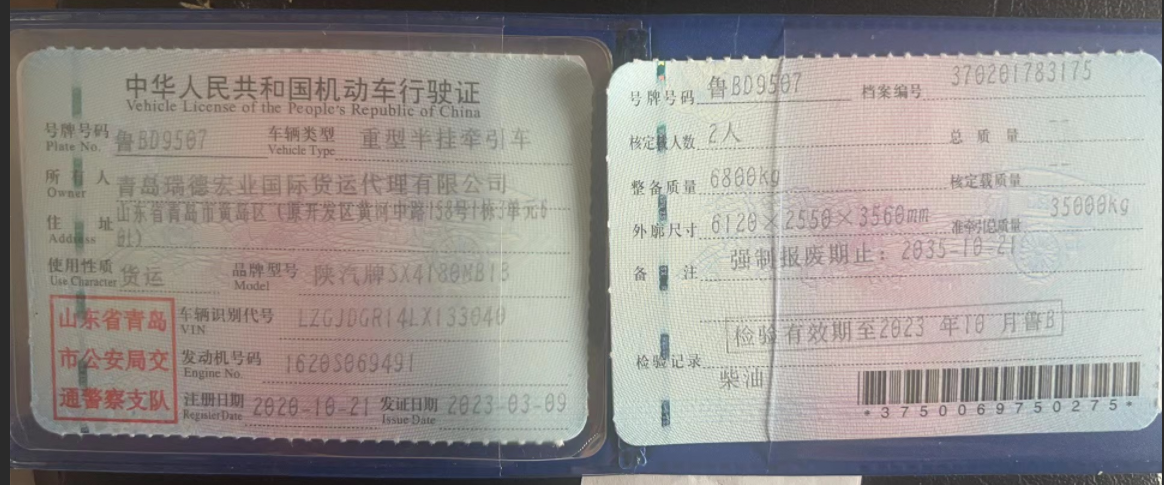 中华人民共和国机动车行驶证
Vehicle License of the People's Republic of China
号牌号码 鲁BD9507 车辆类型 重型半挂牵引车
Plate No. Vehicle Type
所有人 青岛瑞德宏业国际货运代理有限公司
Owner
住址 山东省青岛市黄岛区(原开发区黄河中路158号1栋3单元6
Address 01)
使用性质 货运 品牌型号 陕汽牌SX4180MB1B
Use Character Model
山东省青岛
市公安局交
通警察支队
车辆识别代号 LZGJDGR14LX133040
VIN
发动机号码 1620S069491
Engine No.
注册日期 2020-10-21 发证日期 2023-03-09
Register Date Issue Date
号牌号码 鲁BD9507 档案编号 370201783175
核定载人数 2人 总质量 --
整备质量 6800kg 核定载质量 --
外廓尺寸 6120×2550×3560mm 准牵引总质量 35000kg
备注 强制报废期止：2035-10-21
检验有效期至2023 年10 月鲁B
检验记录
柴油
*3750069750275*